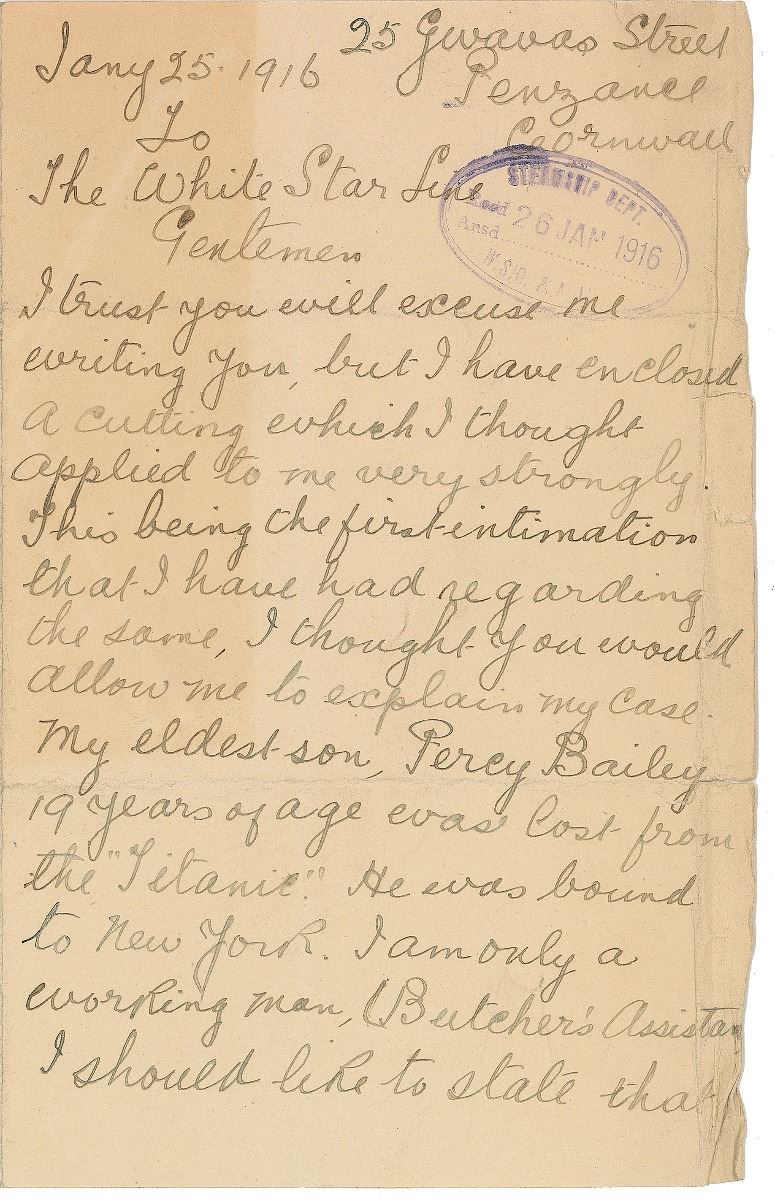 25 Gwavas Street
Jany 25. 1916
Penzance
Cornwall
To
The White Star Line
STEAMSHIP DEPT.
Recd 26 JAN 1916
Ansd.
Gentlemen
I trust you will excuse me
writing you, but I have enclosed
a cutting which I thought
applied to me very strongly.
This being the first intimation
that I have had regarding
the same, I thought you would
allow me to explain my case.
My eldest son, Percy Bailey
19 years of age was lost from
the "Titanic". He was bound
to New York. I am only a
working man, (Butcher's Assistan
I should like to state that